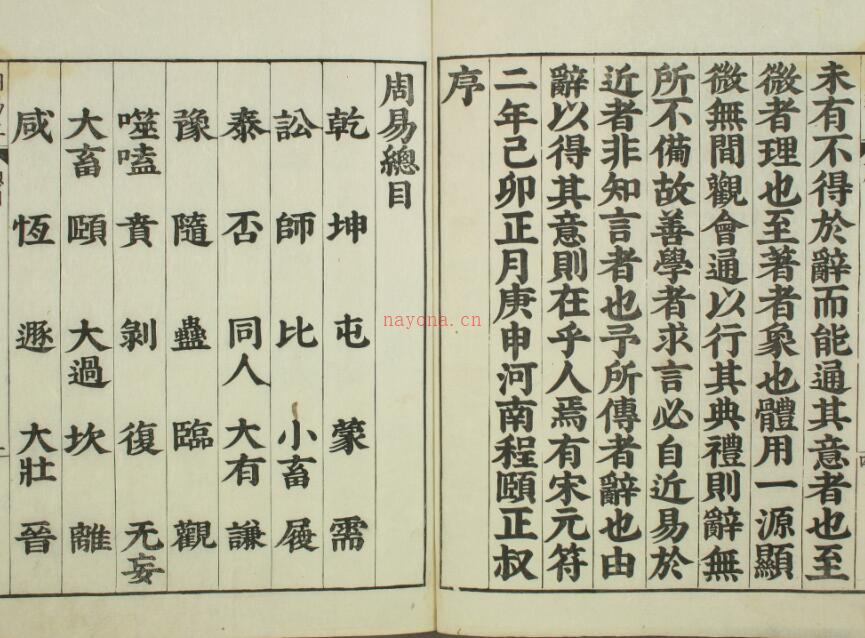 未有不得於辭而能通其意者也至
微者理也至著者象也體用一源顯
微無間觀會通以行其典禮則辭無
所不備故善學者求言必自近易於
近者非知言者也予所傳者辭也由
辭以得其意則在乎人焉有宋元符
二年己卯正月庚申河南程頤正叔
序
周易總目
乾 坤 屯 蒙 需
訟 師 比 小畜 履
泰 否 同人 大有 謙
豫 隨 蠱 臨 觀
噬嗑 賁 剝 復 无妄
大畜 頤 大過 坎 離
咸 恆 遯 大壯 晉
nayona.cn